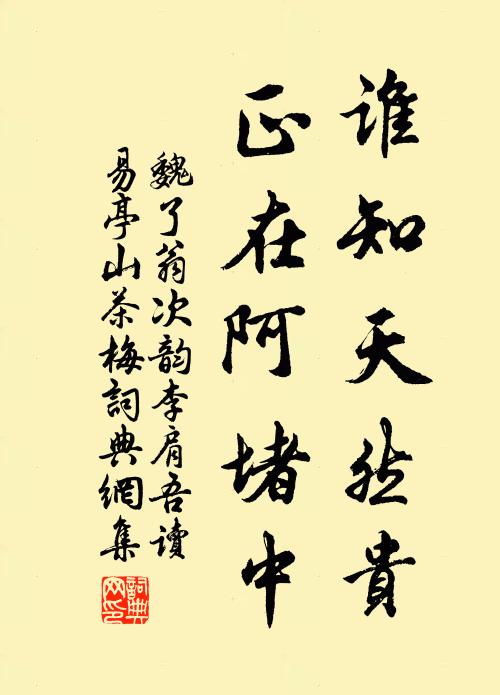 誰知天然貴
正在阿堵中
魏了翁次韵李肩吾讀
易亭山茶梅詞典網集
詞典
网印